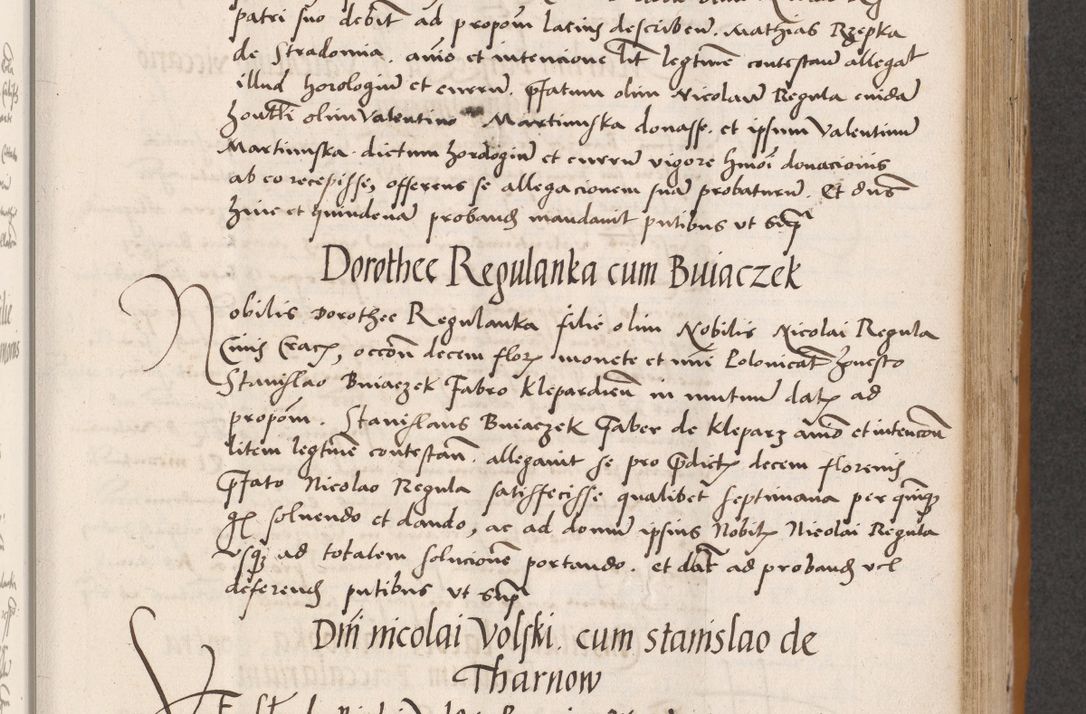 patri suo debit ad propom lacius describen. Mathias Rzepka
de Stradomia. animo et intencione lit legtime contestan allegat
illud horologium et currum. pfatum olim Nicolaum Regula cuidam
olim Valentino Martinuska donasse. et ipsum Valentinum
Martinuska. dictum horologium et currum vigore hmoi donacionis
ab eo recepisse, offerens se allegacionem suam probaturum. Et dns
hinc et quindenam proband mandavit ptibus ut sup
Dorothee Regulanka cum Buiaczek
Nobilis Dorothee Regulanka filie olim Nobilis Nicolai Regula
Civis Crac, occon decem flor monete et nui Polonicat honesto
Stanislao Buiaczek Fabro Klepardien in mutuum dat ad
propom. Stanislaus Buiaczek Faber de Kleparz animo et intencon
litem legtime contestan. allegavit se pro pdict decem florenis
pfato Nicolao Regula satisfecisse qualibet septimana per quinq
gr solvendo et dando, ac ad domum ipsius Nobil Nicolai Regula
usq ad totalem solucionem portando. et dat ad proband vel
deferend ptibus ut sup
Dni nicolai Volski. cum stanislao de
Tharnow